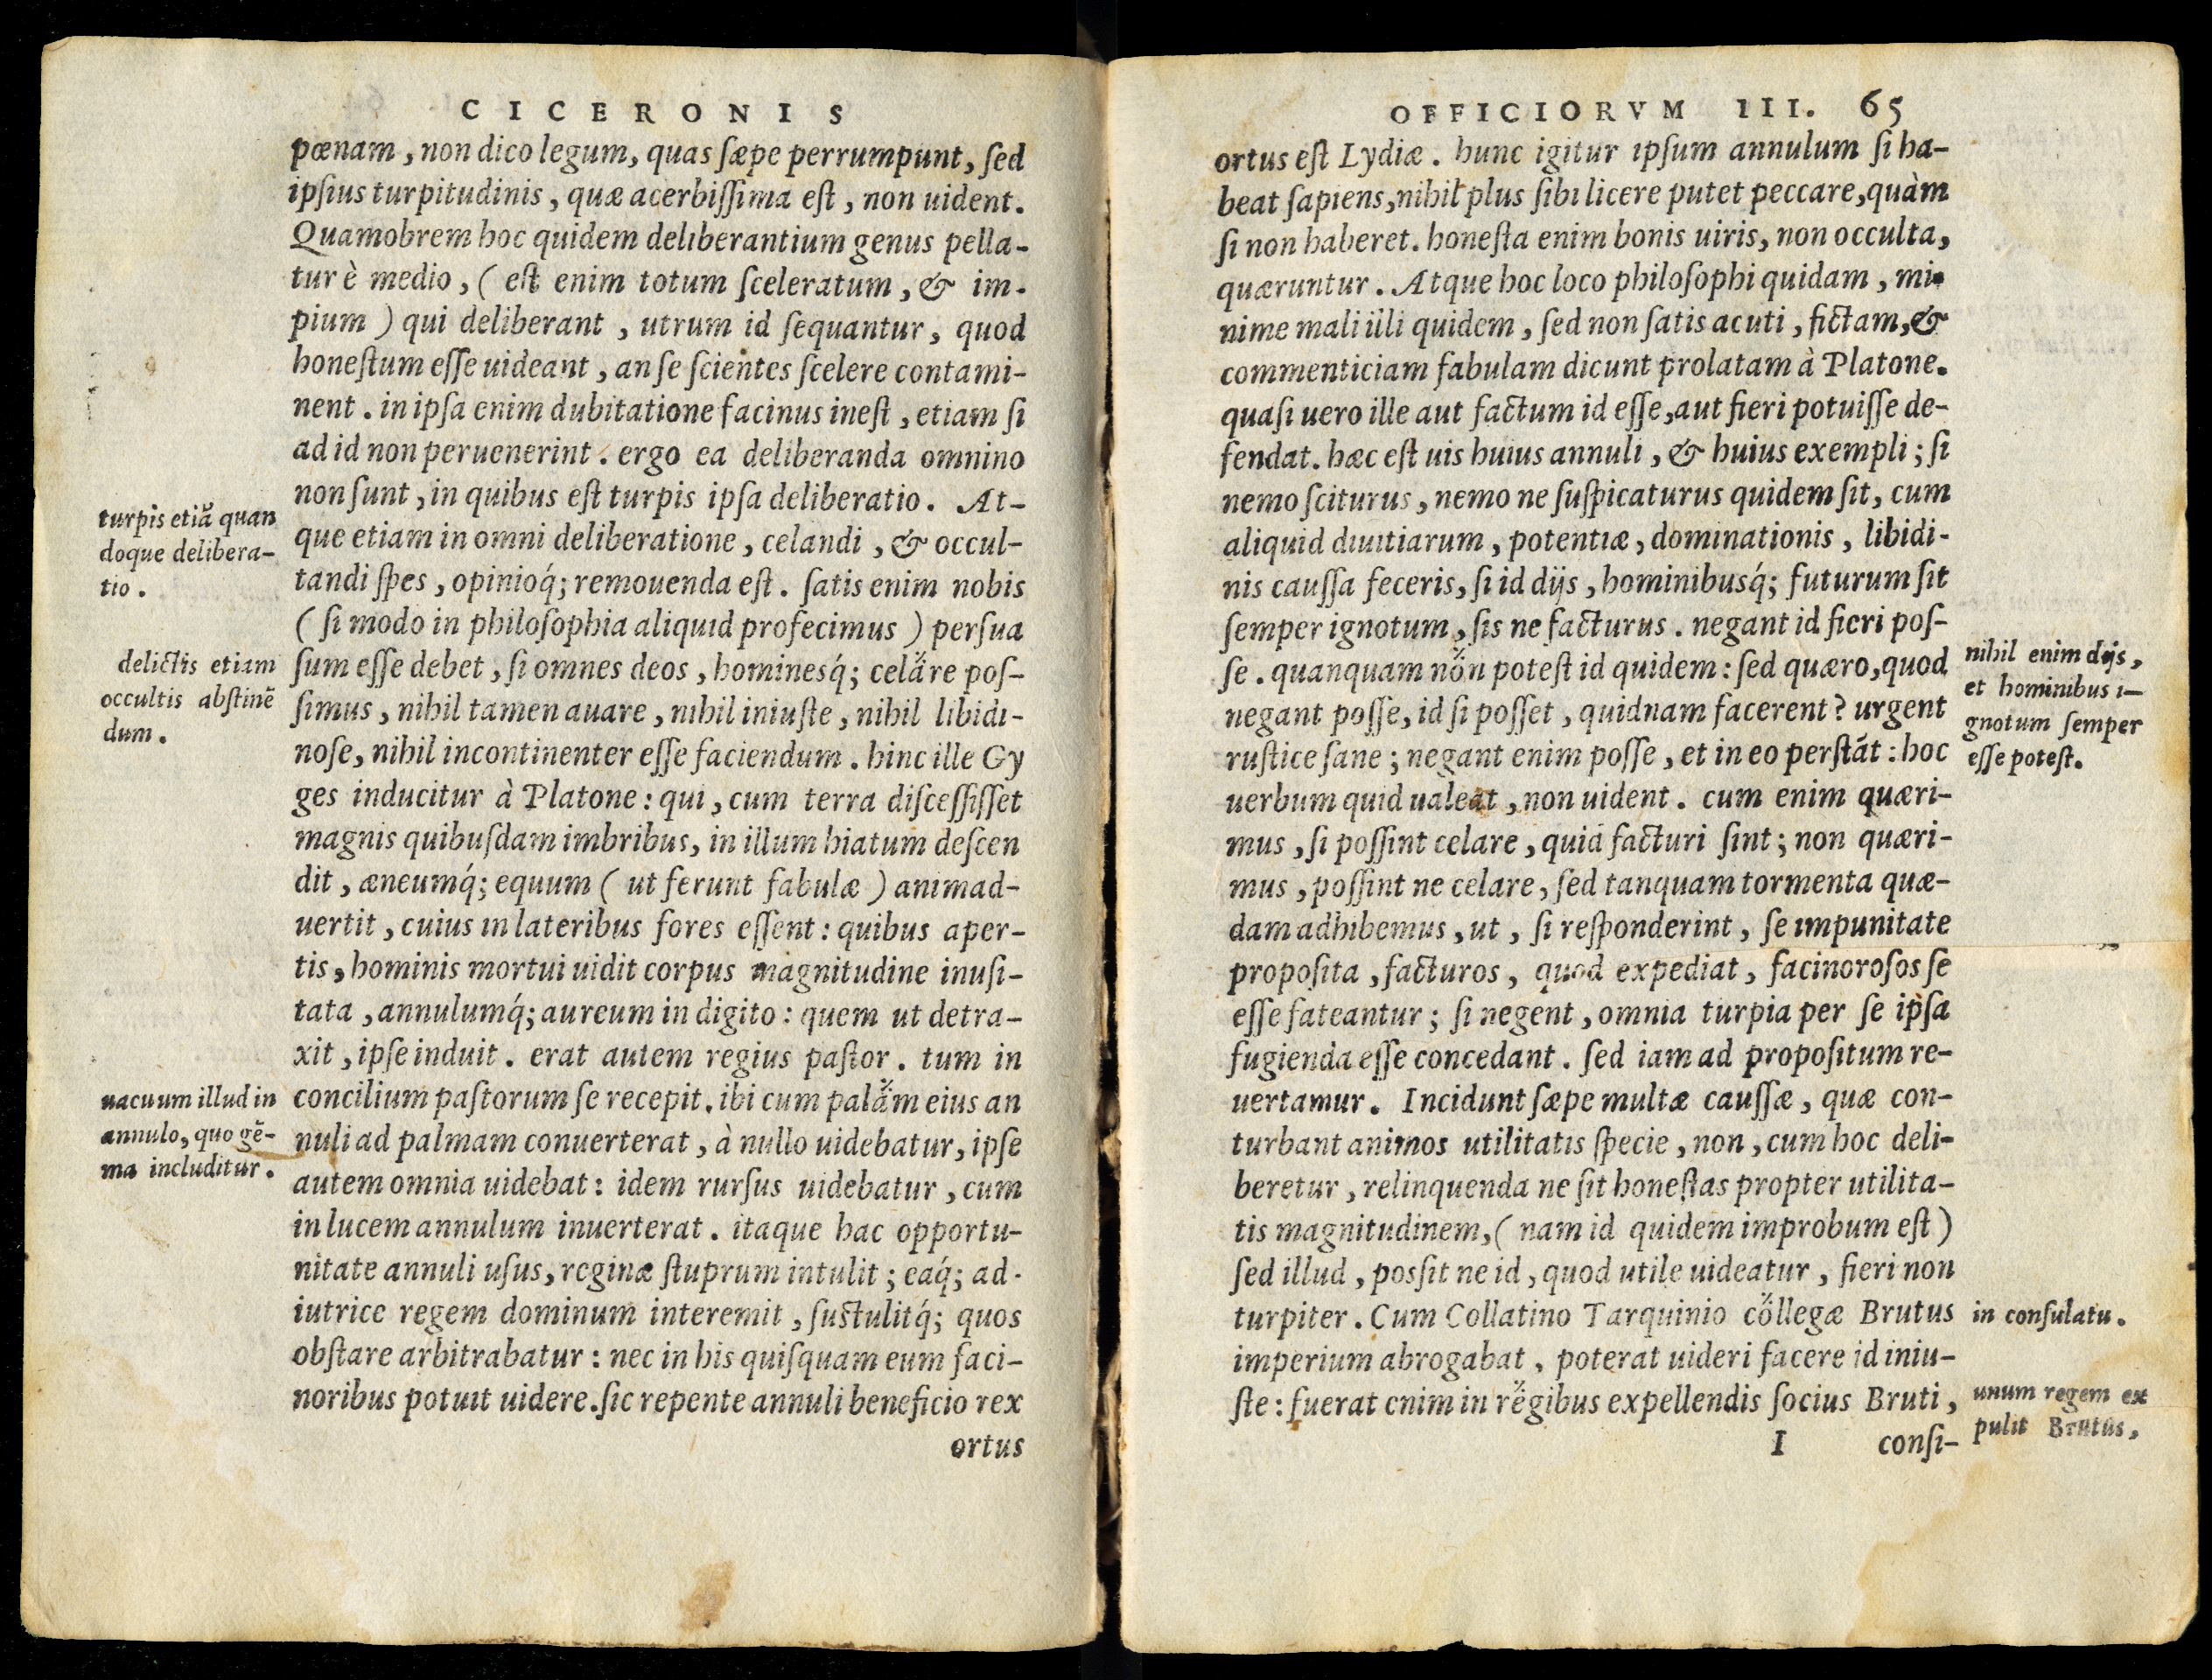 CICERONIS
pœnam, non dico legum, quas ſæpe perrumpunt, ſed
ipſius turpitudinis, quæ acerbiſſima eſt, non uident.
Quamobrem hoc quidem deliberantium genus pella-
tur è medio, ( eſt enim totum ſceleratum, & im-
pium ) qui deliberant, utrum id ſequantur, quod
honeſtum eſſe uideant, an ſe ſcientes ſcelere contami-
nent. in ipſa enim dubitatione facinus ineſt, etiam ſi
ad id non peruenerint. ergo ea deliberanda omnino
non ſunt, in quibus eſt turpis ipſa deliberatio. At-
turpis etiã quan
doque delibera-
tio.
que etiam in omni deliberatione, celandi, & occul-
tandi ſpes, opinioq́; remouenda eſt. ſatis enim nobis
( ſi modo in philoſophia aliquid profecimus ) perſua
delictis etiam
occultis abſtinẽ
dum.
ſum eſſe debet, ſi omnes deos, hominesq́; celare poſ-
ſimus, nihil tamen auare, nihil iniuſte, nihil libidi-
noſe, nihil incontinenter eſſe faciendum. hinc ille Gy
ges inducitur à Platone: qui, cum terra diſceſſiſſet
magnis quibuſdam imbribus, in illum hiatum deſcen
dit, æneumq́; equum ( ut ferunt fabulæ ) animad-
uertit, cuius in lateribus fores eſſent: quibus aper-
tis, hominis mortui uidit corpus magnitudine inuſi-
tata, annulumq́; aureum in digito: quem ut detra-
xit, ipſe induit. erat autem regius paſtor. tum in
uacuum illud in
annulo, quo gẽ-
ma includitur.
concilium paſtorum ſe recepit. ibi cum palam eius an
nuli ad palmam conuerterat, à nullo uidebatur, ipſe
autem omnia uidebat: idem rurſus uidebatur, cum
in lucem annulum inuerterat. itaque hac opportu-
nitate annuli uſus, reginæ ſtuprum intulit; eaq́; ad-
iutrice regem dominum interemit, ſuſtulitq́; quos
obſtare arbitrabatur: nec in his quiſquam eum faci-
noribus potuit uidere. ſic repente annuli beneficio rex
ortus
OFFICIORVM III. 65
ortus eſt Lydiæ. hunc igitur ipſum annulum ſi ha-
beat ſapiens, nihil plus ſibi licere putet peccare, quàm
ſi non haberet. honeſta enim bonis uiris, non occulta,
quæruntur. Atque hoc loco philoſophi quidam, mi-
nime mali illi quidem, ſed non ſatis acuti, fictam, &
commenticiam fabulam dicunt prolatam à Platone.
quaſi uero ille aut factum id eſſe, aut fieri potuiſſe de-
fendat. hæc eſt uis huius annuli, & huius exempli; ſi
nemo ſciturus, nemo ne ſuſpicaturus quidem ſit, cum
aliquid diuitiarum, potentiæ, dominationis, libidi-
nis cauſſa feceris, ſi id dijs, hominibusq́; futurum ſit
ſemper ignotum, ſis ne facturus. negant id fieri poſ-
ſe. quanquam non poteſt id quidem: ſed quæro, quod
nihil enim dijs,
et hominibus i-
gnotum ſemper
eſſe poteſt.
negant poſſe, id ſi poſſet, quidnam facerent? urgent
ruſtice ſane; negant enim poſſe, et in eo perſtãt: hoc
uerbum quid ualeat, non uident. cum enim quæri-
mus, ſi poſſint celare, quid facturi ſint; non quæri-
mus, poſſint ne celare, ſed tanquam tormenta quæ-
dam adhibemus, ut, ſi reſponderint, ſe impunitate
propoſita, facturos, quod expediat, facinoroſos ſe
eſſe fateantur; ſi negent, omnia turpia per ſe ipſa
fugienda eſſe concedant. ſed iam ad propoſitum re-
uertamur. Incidunt ſæpe multæ cauſſæ, quæ con-
turbant animos utilitatis ſpecie, non, cum hoc deli-
beretur, relinquenda ne ſit honeſtas propter utilita-
tis magnitudinem, ( nam id quidem improbum eſt )
ſed illud, poſſit ne id, quod utile uideatur, fieri non
turpiter. Cum Collatino Tarquinio collegæ Brutus
in conſulatu.
imperium abrogabat, poterat uideri facere id iniu-
ſte: fuerat enim in regibus expellendis ſocius Bruti,
unum regem ex
pulit Brutus,
I conſi-